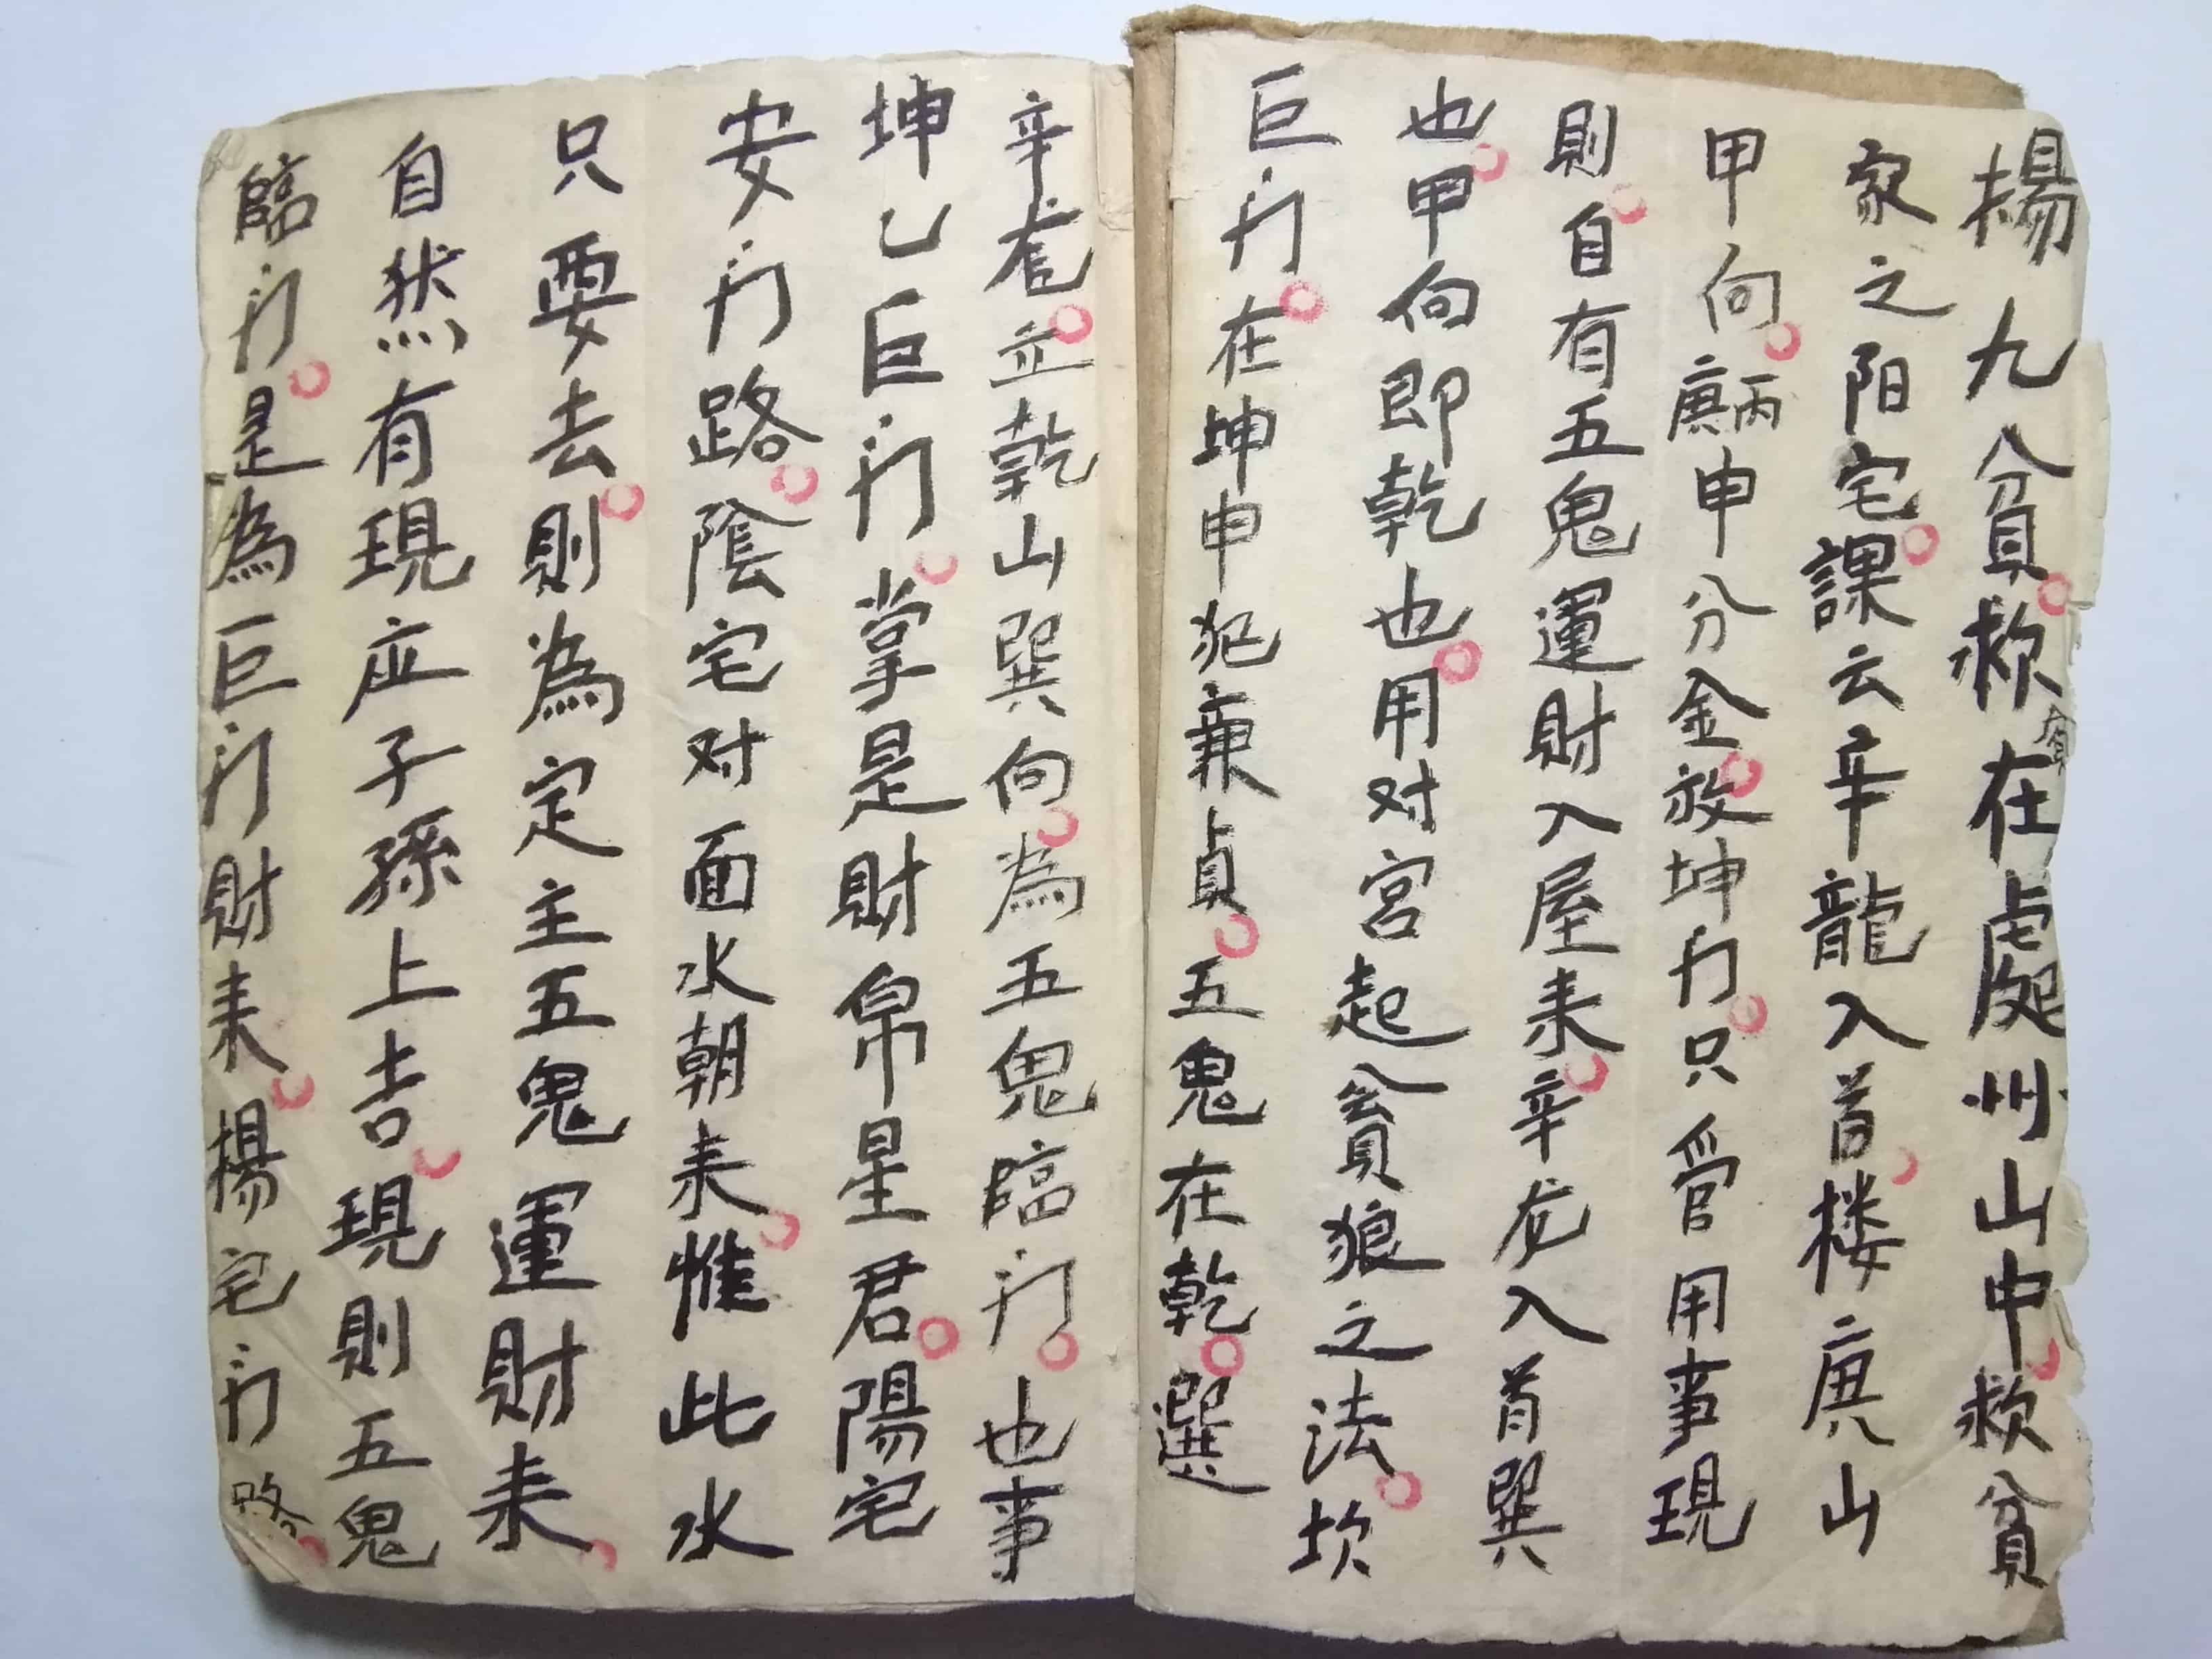 揚九貧救在處州山中救貧
貧
家之阳宅課云辛龍入首楼庚山
甲向庚丙申分金放坤门只管用事現
則自有五鬼運財入屋耒辛龙入首巽
也甲向即乾也用对宮起貪狼之法坎
巨门在坤申犯兼貞五鬼在乾選
辛龙立乾山巽向為五鬼臨门也事
坤乙巨门掌是財帛星君陽宅
安门路陰宅对面水朝耒惟此水
只要去則為定主五鬼運財耒
自然有現应子孫上吉現則五鬼
臨门是為巨门財耒楊宅门路